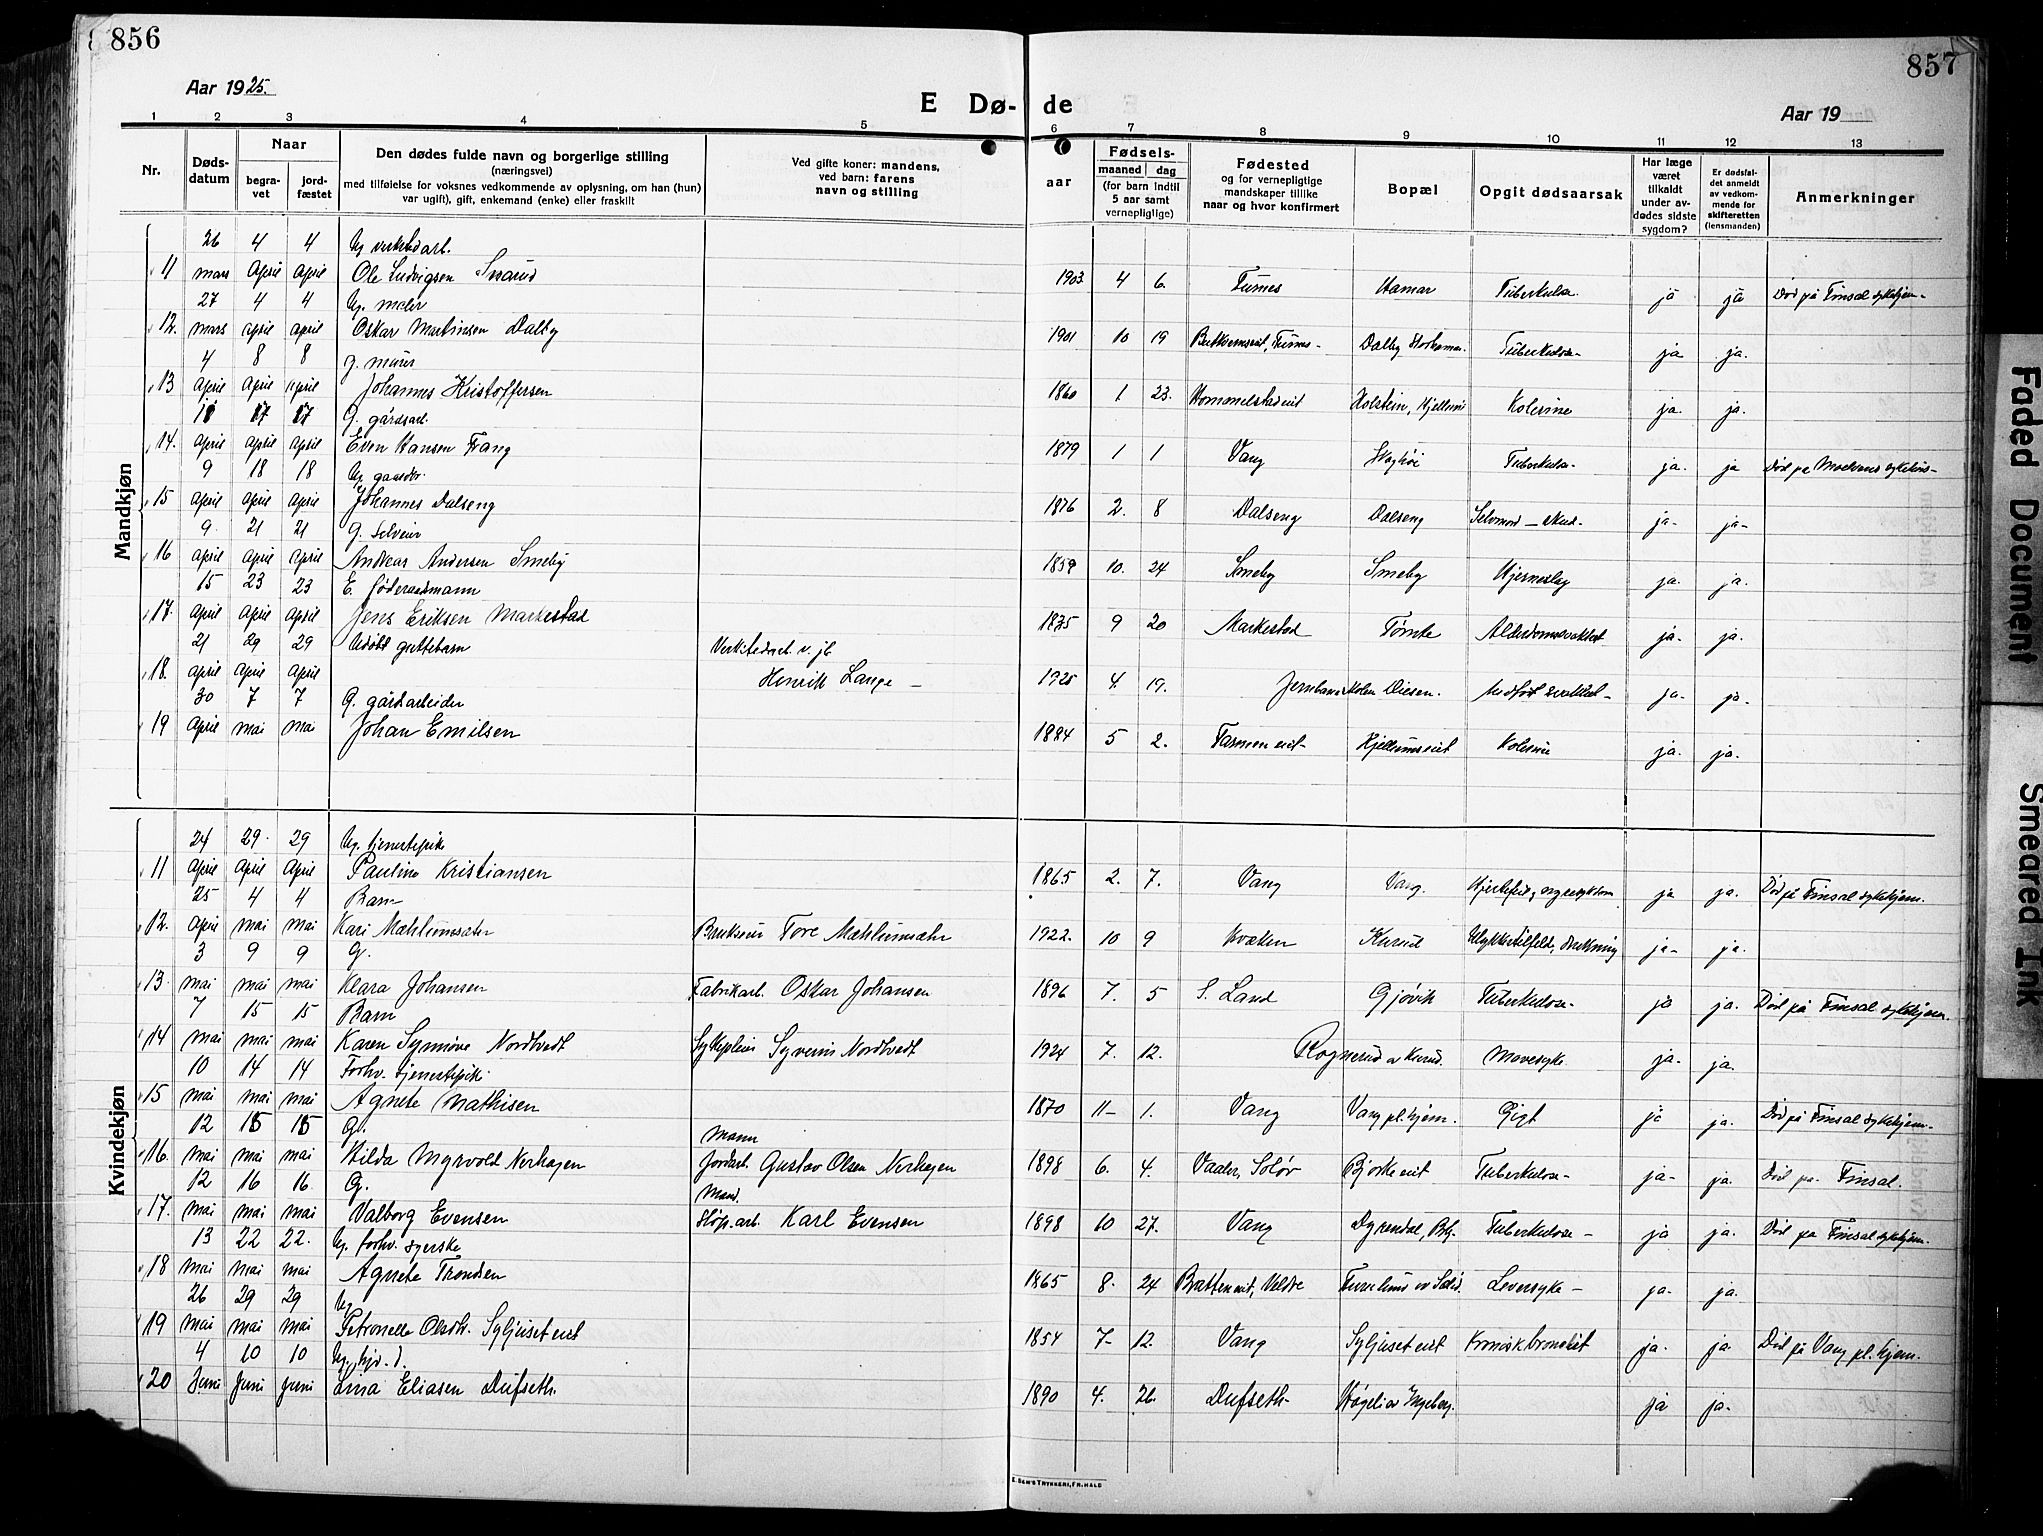 856
857
Aar 1925.
Aar 19
E Dø- de
1 2 3 4 5 6 7 8 9 10 11 12 13
Nr.
Døds-
datum
Naar
begra-
vet
jord-
fæstet
Den dødes fulde navn og borgerlige stilling
(næringsvei)
med tilføielse for voksnes vedkommende av oplysning, om han (hun)
var ugift), gift, enkemand (enke) eller fraskilt
Ved gifte koner: mandens,
ved barn: farens
navn og stilling
Fødsels-
aar
maaned dag
(for barn indtil
5 aar samt
vernepligtige)
Fødested
og for vernepligtige
mandskaper tillike
naar og hvor konfirmert
Bopæl
Opgit dødsaarsak
Har læge
været
tilkaldt
under av-
dødes sidste
sygdom?
Er dødsfal-
det anmeldt
av vedkom-
mende for
skifteretten
(lensmanden)
Anmerkninger
Mandkjøn
26 4 4 Ug. verkstedarb.
11 mars april april Ole Ludvigsen Snarud 1903 4 6. Furnes Hamar Tuberkulose ja ja Død på Finsal sykehjem-
27 4 4 Ug. maler
12. mars april april Oskar Martinsen Dalby 1901 10 19 Furnes- Dalby Tuberkulose- ja ja.
4 8 8 g. murer
13 April April April Johannes Kristoffersen 1860 1 23. Hommelstadeiet Holstein, Hjellum ja. ja.
17 17 G. gårdsarb.
14. april april april Even Hansen Frang 1879 1 1 Vang Tuberkulose- ja. ja
9 18 18 Ug. gaardbr.
15 April April April Johannes Dalseng 1876 2. 8 Dalseng Dalseng Selvmord - skud- ja- ja-
9. 21 21 G. Selveier
16 April April April Andreas Andersen Smeby 1859 10. 24 Smeby Smeby Hjerneslag ja. ja.
15 23 23 E. føderaadmann
17. April April April Jens Eriksen Markestad 1835 9 20 Markestad Tømte ja- ja.
21 29 29 Udøbt guttebarn Verkstedarb. v. jb
18. April April April Henrik Lange - 1925 4. 19. Diesen. Medfødt svakhet- ja- ja.
30 7 7 G. gårdarbeider
19 April mai mai Johan Emilsen 1884 5 2. Hjellumseiet ja. ja.
Kvindekjøn
24 29. 29 Ug. tjenestepike
11 April April April Pauline Kristiansen 1865 2. 7. Vang Vang. ja ja. Død på Finsal sykehjem.
25 4 4 Barn
12. April mai mai Kari Mæhlumsæter Brukseier Tore Mæhlumsæter 1922. 10 9 Kvæken Kurud Ulykkestilfelde, drukning ja- ja.
3 9 9 G.
13. mai mai mai Klara Johansen Fabrikarb. Oskar Johansen 1896 7. 5 S. Land Gjøvik Tuberkulose- ja ja. Død på Finsal sykehjem.
7 15 15 Barn
14 mai mai mai Karen Synnøve Nordtvedt Sykepleier Syverin Nordtvedt 1924 7. 12. Rognerud av Kurud. Mavesyke ja- ja.
10 14 14 Forhv. tjenestepike
15 mai mai mai Agnete Mathisen 1870 11- 1. Vang Vang pl.hjem. Gigt ja ja. Død på Finsal sykehjem.
12 15 15 G. Mann
16. mai mai mai Hilda Myrvold Nerhagen Jordarb. Gustav Olsen Nerhagen 1898 6. 4. Vaaler, Solør Bjørkeeiet Tuberkulose- ja- ja. Død på Finsal.
12 16 16. G. Mand.
17. mai mai mai Valborg Evensen Karl Evensen 1898 10 27. Vang Tuberkulose- ja ja. Død på Finsal sykehjem.
13 22 22. Ug. forhv. syerske
18 mai mai mai Agnete Trondsen 1865 8. 24 Leversyke - ja. ja.
26 29 29 Ug
19 mai mai mai Petronelle Olsdtr. Syljuseteiet 1854 7- 12. Vang Syljuseteiet Kronisk bronkit ja. ja. Død på Vang pl.hjem.
4 10 10
20 Juni Juni Juni Lina Eliasen Dufseth. 1890 4. 26. Dufseth- ja ja.
E. SEM'S TRYKKERI, FR.HALD
Faded Document
Smeared Ink